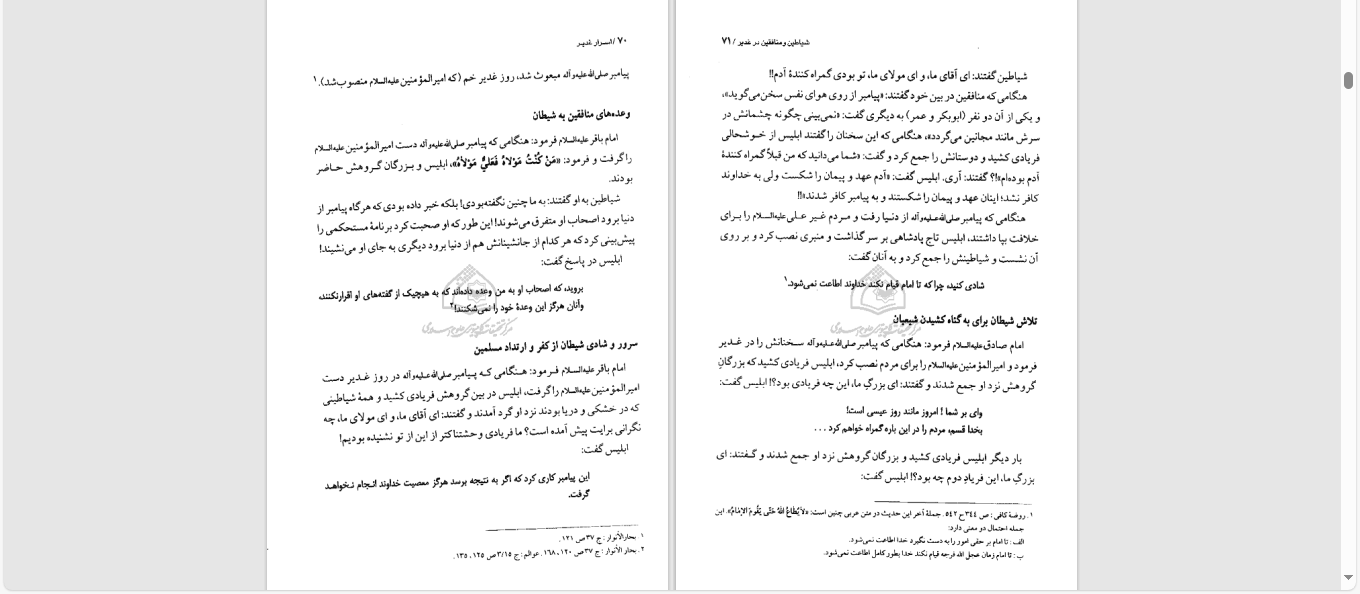 ۷۰ / اسرار غدیر
پیامبر صلی‌الله‌علیه‌وآله مبعوث شد، روز غدیر خم (که امیرالمؤمنین علیه‌السلام منصوب شد).۱
وعده‌های منافقین به شیطان
امام باقر علیه‌السلام فرمود: هنگامی که پیامبر صلی‌الله‌علیه‌وآله دست امیرالمؤمنین علیه‌السلام
را گرفت و فرمود: «مَنْ كُنْتُ مَوْلاهُ فَعَلِيٌّ مَوْلاهُ»، ابلیس و بزرگان گروهش حاضر
بودند.
شیاطین به او گفتند: به ما چنین نگفته بودی! بلکه خبر داده بودی که هرگاه پیامبر از
دنیا برود اصحاب او متفرق می‌شوند! این طور که او صحبت کرد برنامهٔ مستحکمی را
پیش‌بینی کرد که هر کدام از جانشینانش هم از دنیا برود دیگری به جای او می‌نشیند!
ابلیس در پاسخ گفت:
بروید، که اصحاب او به من وعده داده‌اند که به هیچیک از گفته‌های او اقرار نکنند،
و آنان هرگز این وعدهٔ خود را نمی‌شکنند!۲
سرور و شادی شیطان از کفر و ارتداد مسلمین
امام باقر علیه‌السلام فرمود: هنگامی که پیامبر صلی‌الله‌علیه‌وآله در روز غدیر دست
امیرالمؤمنین علیه‌السلام را گرفت، ابلیس در بین گروهش فریادی کشید و همهٔ شیاطینی
که در خشکی و دریا بودند نزد او گرد آمدند و گفتند: ای آقای ما، و ای مولای ما، چه
نگرانی برایت پیش آمده است؟ ما فریادی وحشتناکتر از این از تو نشنیده بودیم!
ابلیس گفت:
این پیامبر کاری کرد که اگر به نتیجه برسد هرگز معصیت خداوند انجام نخواهد
گرفت.
۱. بحارالأنوار: ج ۳۷ ص ۱۲۱.
۲. بحار الأنوار: ج ۳۷ ص ۱۲۰، ۱۶۸. عوالم: ج ۳/۱۵ ص ۱۲۵، ۱۳۵.
شیاطین و منافقین در غدیر / ۷۱
شیاطین گفتند: ای آقای ما، و ای مولای ما، تو بودی گمراه کنندهٔ آدم!!
هنگامی که منافقین در بین خود گفتند: «پیامبر از روی هوای نفس سخن می‌گوید»،
و یکی از آن دو نفر (ابوبکر و عمر) به دیگری گفت: «نمی‌بینی چگونه چشمانش در
سرش مانند مجانین می‌گردد»، هنگامی که این سخنان را گفتند ابلیس از خوشحالی
فریادی کشید و دوستانش را جمع کرد و گفت: «شما می‌دانید که من قبلاً گمراه کنندهٔ
آدم بوده‌ام»!؟ گفتند: آری. ابلیس گفت: «آدم عهد و پیمان را شکست ولی به خداوند
کافر نشد؛ اینان عهد و پیمان را شکستند و به پیامبر کافر شدند»!!
هنگامی که پیامبر صلی‌الله‌علیه‌وآله از دنیا رفت و مردم غیر علی علیه‌السلام را برای
خلافت بپا داشتند، ابلیس تاج پادشاهی بر سر گذاشت و منبری نصب کرد و بر روی
آن نشست و شیاطینش را جمع کرد و به آنان گفت:
شادی کنید، چرا که تا امام قیام نکند خداوند اطاعت نمی‌شود.۱
تلاش شیطان برای به گناه کشیدن شیعیان
امام صادق علیه‌السلام فرمود: هنگامی که پیامبر صلی‌الله‌علیه‌وآله سخنانش را در غدیر
فرمود و امیرالمؤمنین علیه‌السلام را برای مردم نصب کرد، ابلیس فریادی کشید که بزرگان
گروهش نزد او جمع شدند و گفتند: ای بزرگ ما، این چه فریادی بود؟! ابلیس گفت:
وای بر شما! امروز مانند روز عیسی است!
بخدا قسم، مردم را در این باره گمراه خواهم کرد ...
بار دیگر ابلیس فریادی کشید و بزرگان گروهش نزد او جمع شدند و گفتند: ای
بزرگ ما، این فریاد دوم چه بود؟! ابلیس گفت:
۱. روضهٔ کافی: ص ۳۴۴ ح ۵۴۲. جملهٔ آخر این حدیث در متن عربی چنین است: «لا يُطاعُ اللهُ حَتّى يَقُومَ الإمامُ». این
جمله احتمال دو معنی دارد:
الف: تا امام بر حقی امور را به دست نگیرد خدا اطاعت نمی‌شود.
ب: تا امام زمان عجل الله فرجه قیام نکند خدا بطور کامل اطاعت نمی‌شود.